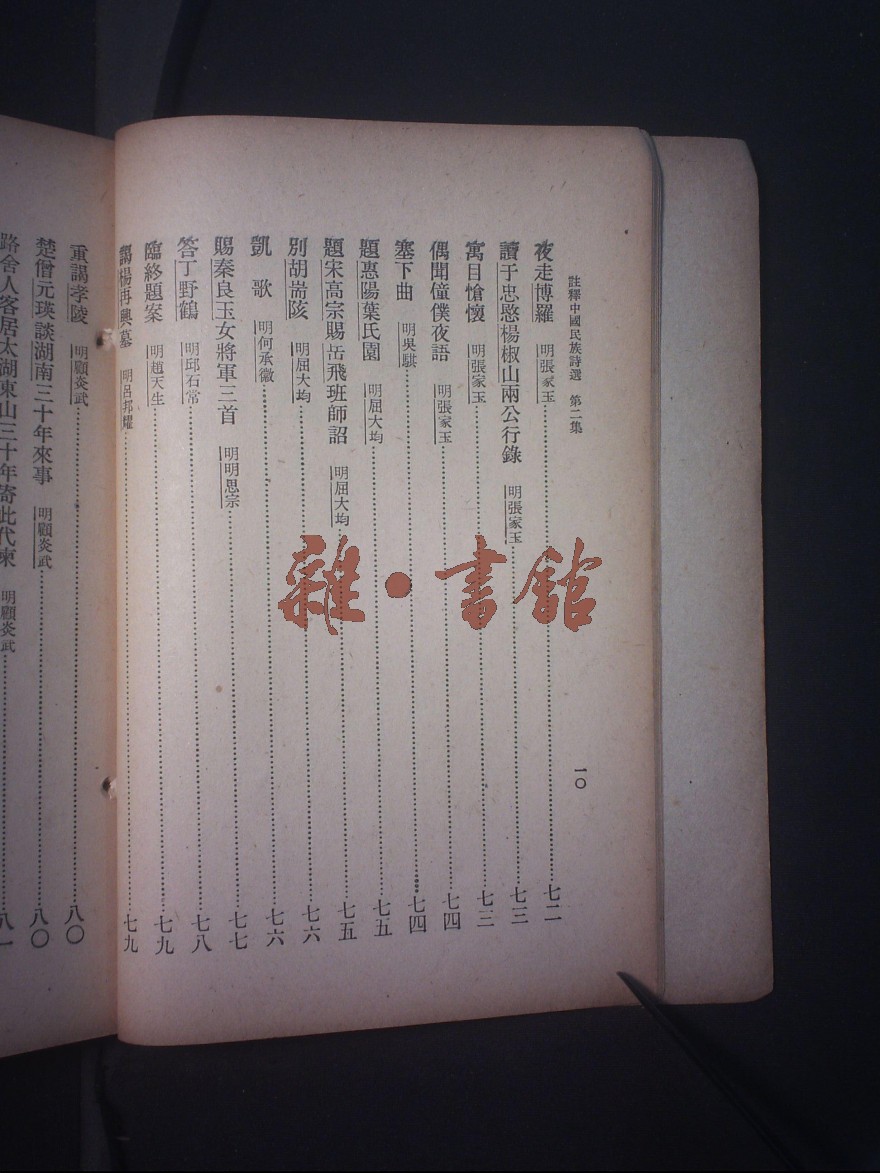 註釋中國民族詩選 第二集
一〇
夜走博羅 明張家玉 七二
讀于忠愍楊椒山兩公行錄 明張家玉 七三
寓目愴懷 明張家玉 七三
偶聞僮僕夜語 明張家玉 七四
塞下曲 明吳騏 七四
題惠陽葉氏園 明屈大均 七五
題宋高宗賜岳飛班師詔 明屈大均 七五
別胡耑陔 明屈大均 七六
凱歌 明何承徽 七六
賜秦良玉女將軍三首 明明思宗 七七
答丁野鶴 明邱石常 七八
臨終題案 明趙天生 七九
謁楊再興墓 明呂邦耀 七九
重謁孝陵 明顧炎武 八〇
楚僧元瑛談湖南三十年來事 明顧炎武 八〇
路舍人客居太湖東山三十年寄此代柬 明顧炎武 八一
雜·書館